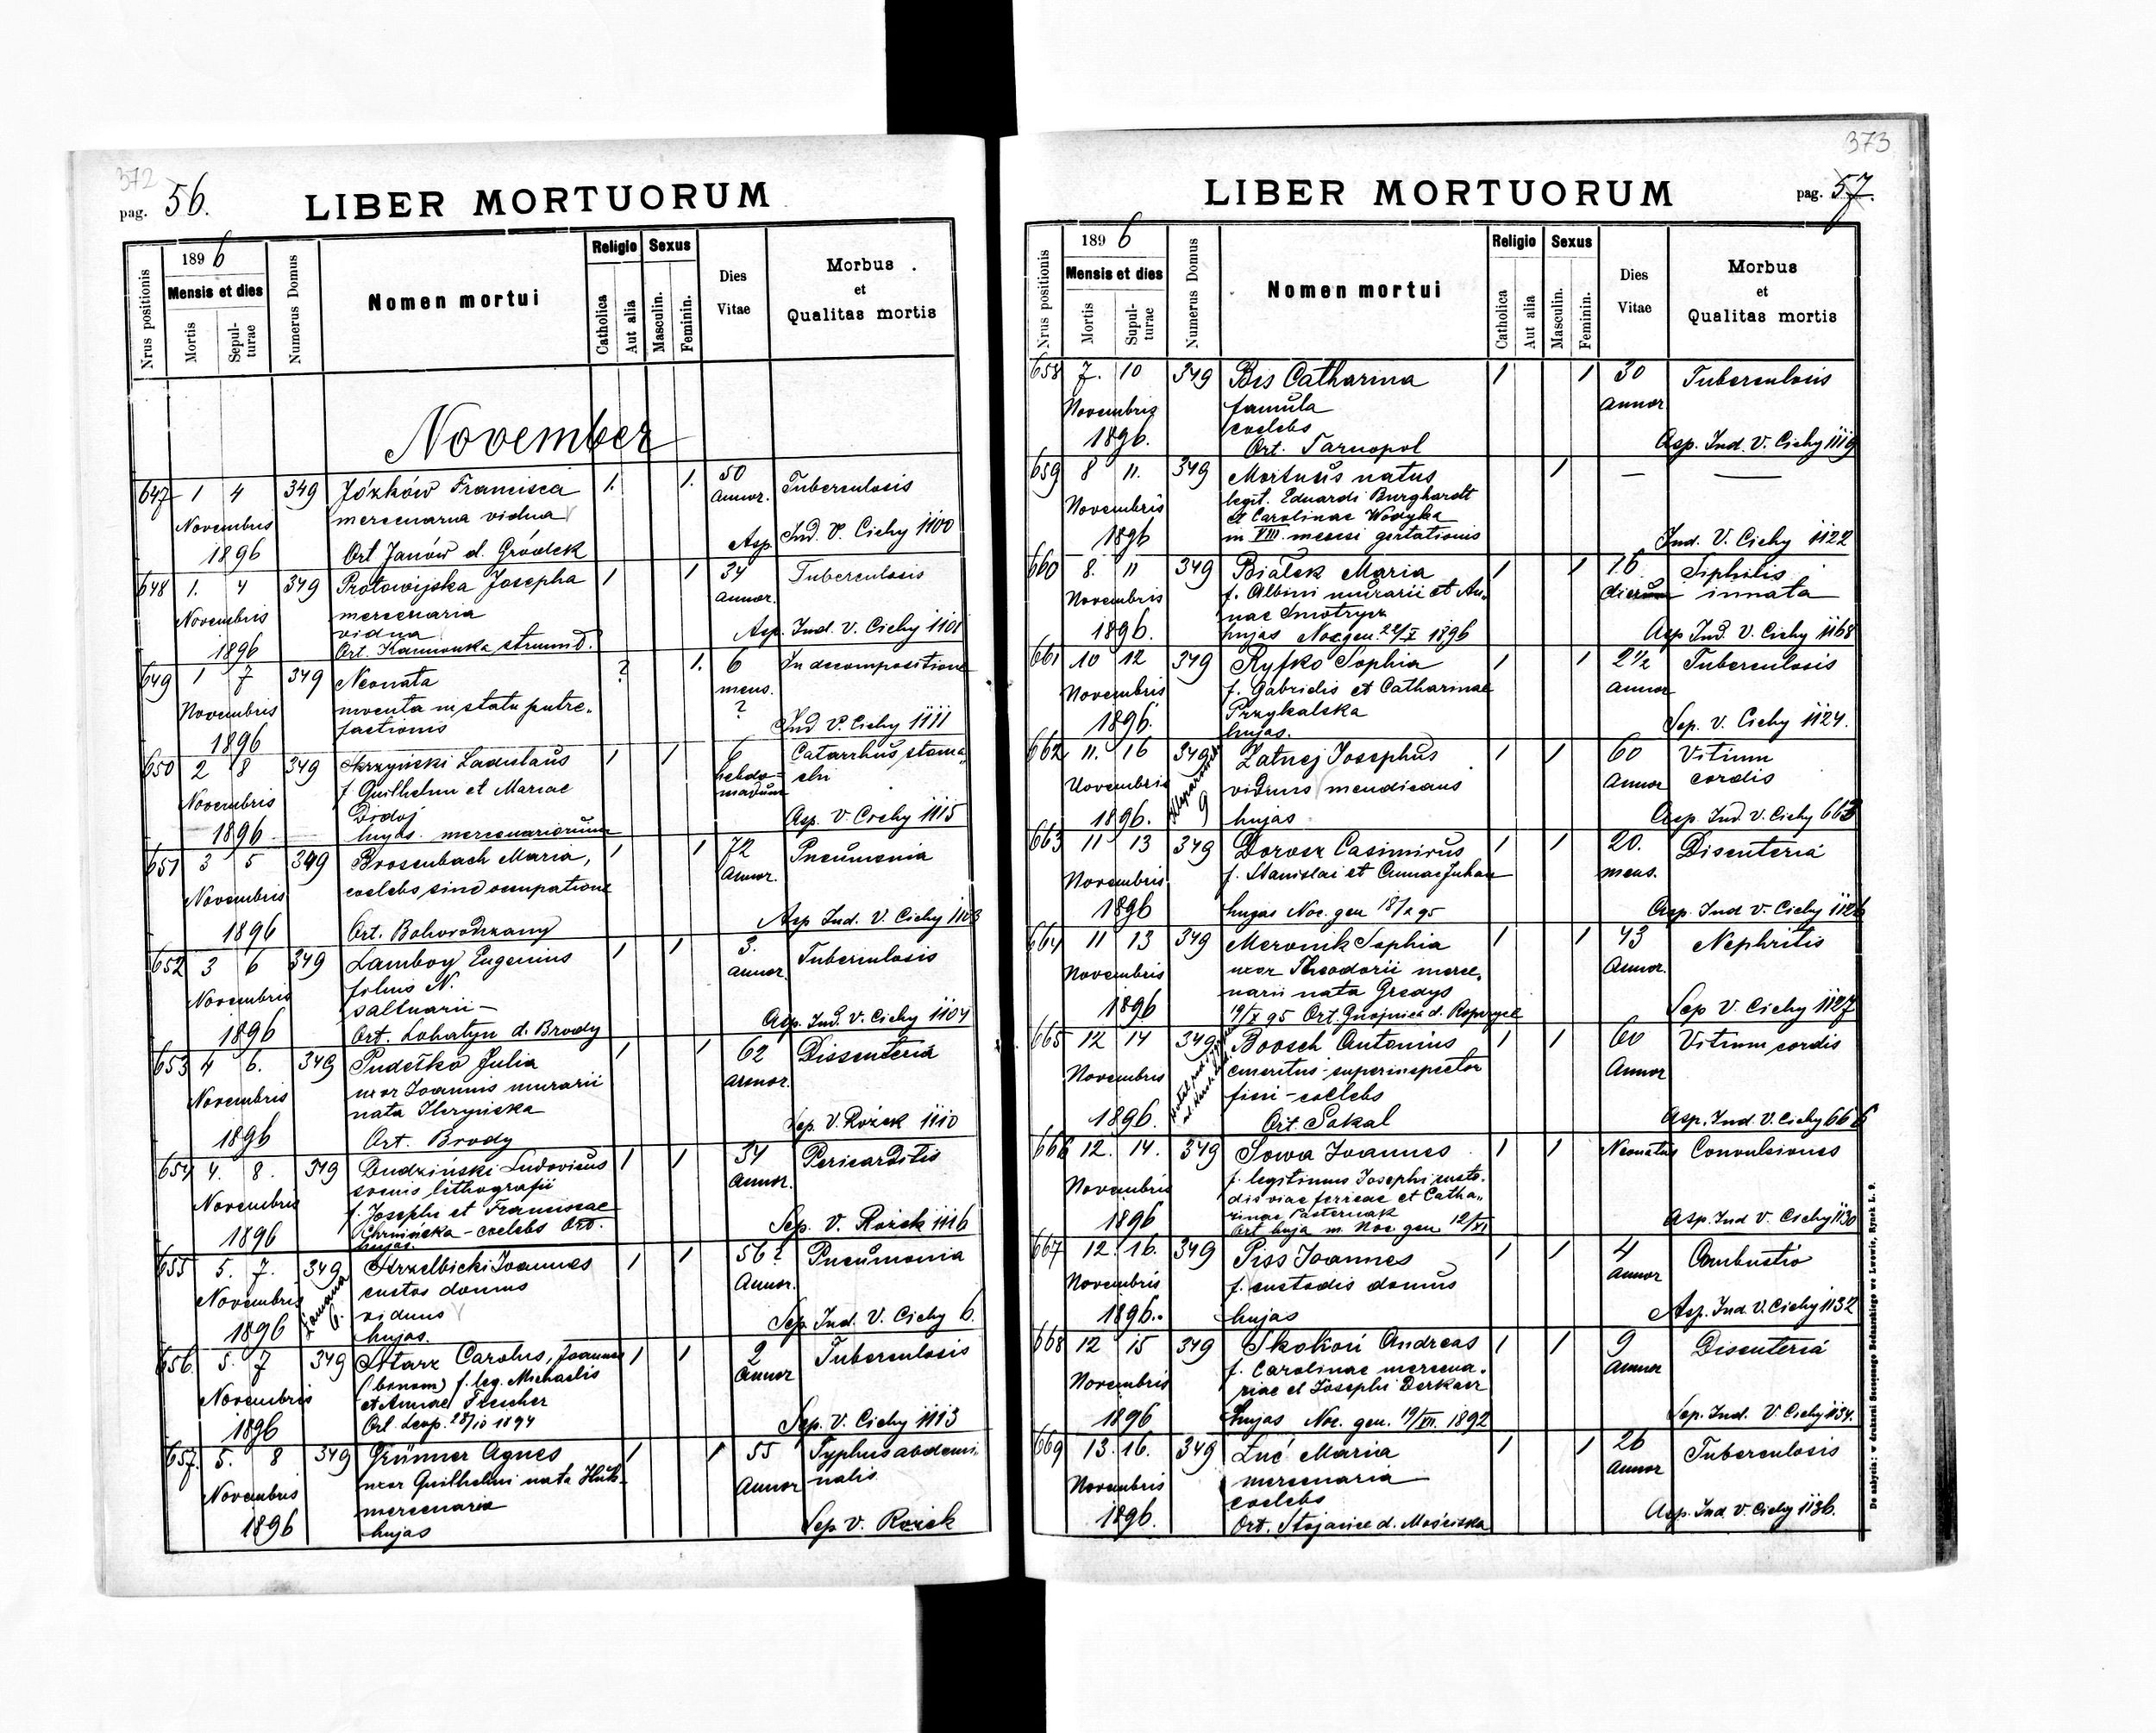 372
pag. 56.
LIBER MORTUORUM
Nrus positionis
1896
Mensis et dies
Mortis
Sepulturae
Numerus Domus
Nomen mortui
Religio
Catholica
Aut alia
Sexus
Masculin.
Feminin.
Dies
Vitae
Morbus
et
Qualitas mortis
November
647 1 4 349 Józków Francisca 1. 1. 50 Tuberculosis
Novembris mercenaria vidua Annor.
1896 Ort Janów d. Gródek Asp. Ind. V. Cichy 1100
648 1. 4 349 Josepha 1 1 34 Tuberculosis
Novembris mercenaria annor.
vidua Asp. Ind. V. Cichy 1101
1896 Ort. Kamionka strumil.
649 1 7 349 Neonata ? 1. 6 In decompositione
Novembris inventa in statu putre„ mens.
1896 factionis ? Ind V. Cichy 1111
650 2 8 349 Skrzyński Ladislaus 1 1 6 Catarrhus stoma„
Novembris f. Guilhelmi et Mariae hebdo= chi
madum
1896 hujas. mercenariorum Asp. V. Cichy 1115
651 3 5 349 Brosenbach Maria, 1 1 72 Pneumonia
Novembris coelebs sine occupatione Annor.
1896 Ort. Bohorodczany Asp Ind. V. Cichy 1103
652 3 6 349 Lamboy Eugenius 1 1 3. Tuberculosis
Novembris filius N. annor.
saltuarii –
1896 Ort. Lohatyn d. Brody Asp. Ind. V. Cichy 1104
653 4 6. 349 Pudełko Julia 1 1 62 Dissenteria
Novembris uxor Joannis murarii annor.
nata
1896 Ort. Brody Sep. V. Rożek 1110
654 4. 8. 349 Dudziński Ludovicus 1 1 34 Pericarditis
Novembris socius lithografii Annor.
f. Josephi et Franciscae
1896 – coelebs Ort. Sep. V. Rożek 1116
hujas.
655 5. 7. 349 Strzelbicki Joannes 1 1 56? Pneumonia
Novembris 6. custos domus Annor.
viduus
1896 hujas. Sep. Ind. V. Cichy 6.
656. 5. 7 349 Starz Carolus, Joannes 1 1 2 Tuberculosis
Novembris (binom) f. leg. Michaelis Annor
et Annae Fleicher
1896 Ort. Leop. 28/10 1894 Sep. V. Cichy 1113
657. 5. 8 349 Grünner Agnes 1 1 55 Typhus abdomi„
Novembris uxor Guilhelmi nata Annor nalis
mercenaria
1896 hujas Sep V. Rożek
373
LIBER MORTUORUM
pag. 57.
Nrus positionis
1896
Mensis et dies
Mortis
Supulturae
Numerus Domus
Nomen mortui
Religio
Catholica
Aut alia
Sexus
Masculin.
Feminin.
Dies
Vitae
Morbus
et
Qualitas mortis
658 7. 10 349 Bis Catharina 1 1 30 Tuberculosis
Novembris famula annor
coelebs
1896. Ort. Tarnopol Asp. Ind. V. Cichy 1119
659 8 11. 349 Mortuus natus 1 — —
Novembris legit. Eduardi Burghardt
et Carolinae Wodyka
1896 in VIII. mensi gestationis Ind. V. Cichy 1122
660 8. 11 349 Białek Maria 1 1 16 Siphilis
Novembris f. Albini murarii et An„ dierum innata
nae Smotrycz
1896. hujas Noc. gen 22/X 1896 Asp Ind. V. Cichy 1168
661 10 12 349 Ryfko Sophia 1 1 2 1/2 Tuberculosis
Novembris f. Gabrielis et Catharinae annor
Przykalska
1896. hujas. Sep. V. Cichy 1124.
662 11. 16 349 Zatnej Josephus 1 1 60 Vitium
Novembris 9 viduus mendicans Annor cordis
1896. hujas Asp. Ind. V. Cichy 663
663 11 13 349 Dorocz Casimirus 1 1 20. Disenteria
Novembris f. Stanislai et Annae Juhan mens.
1896 hujas Noc. gen 18/2 95 Asp. Ind V. Cichy 1126
664 11 13 349 Meronik Sophia 1 1 43 Nephritis
Novembris uxor Theodorii merce„ Annor.
narii nata Gredys
1896 19/X 95 Ort. Gnojnica d. Ropczyce Sep V. Cichy 1127
665 12 14 349 Boosch Antonius 1 1 60 Vitium cordis
Novembris emeritus superinspector Annor
– coelebs
1896. Ort. Sokal Asp. Ind. V. Cichy 666
666 12. 14. 349 Sowa Joannes 1 1 Neonatus Convulsiones
Novembris f. legitimus Josephi custo„
dis viae ferreae et Catha„
1896 rinae Pasternak
Ort huja m. Noc. gen 12/XI Asp. Ind V. Cichy 1130
667 12. 16. 349 Piss Joannes 1 1 4 Combustio
Novembris f. custodis domus Annor
1896. hujas Asp. Ind. V. Cichy 1132
668 12 15 349 Skokoń Andreas 1 1 9 Disenteria
Novembris f. Carolinae mercena„ Annor
riae et Josephi Derkacz
1896 hujas Noc. gen. 19/XII. 1892 Sep. Ind. V. Cichy 1134.
669 13. 16. 349 Łuć Maria 1 1 26 Tuberculosis
Novembris mercenaria Annor
coelebs
1896. Ort. Stojance d. Mościska Asp. Ind V. Cichy 1136.
De nabycia: w drukarni Szczęsnego Bednarskiego we Lwowie, Rynek L. 9.